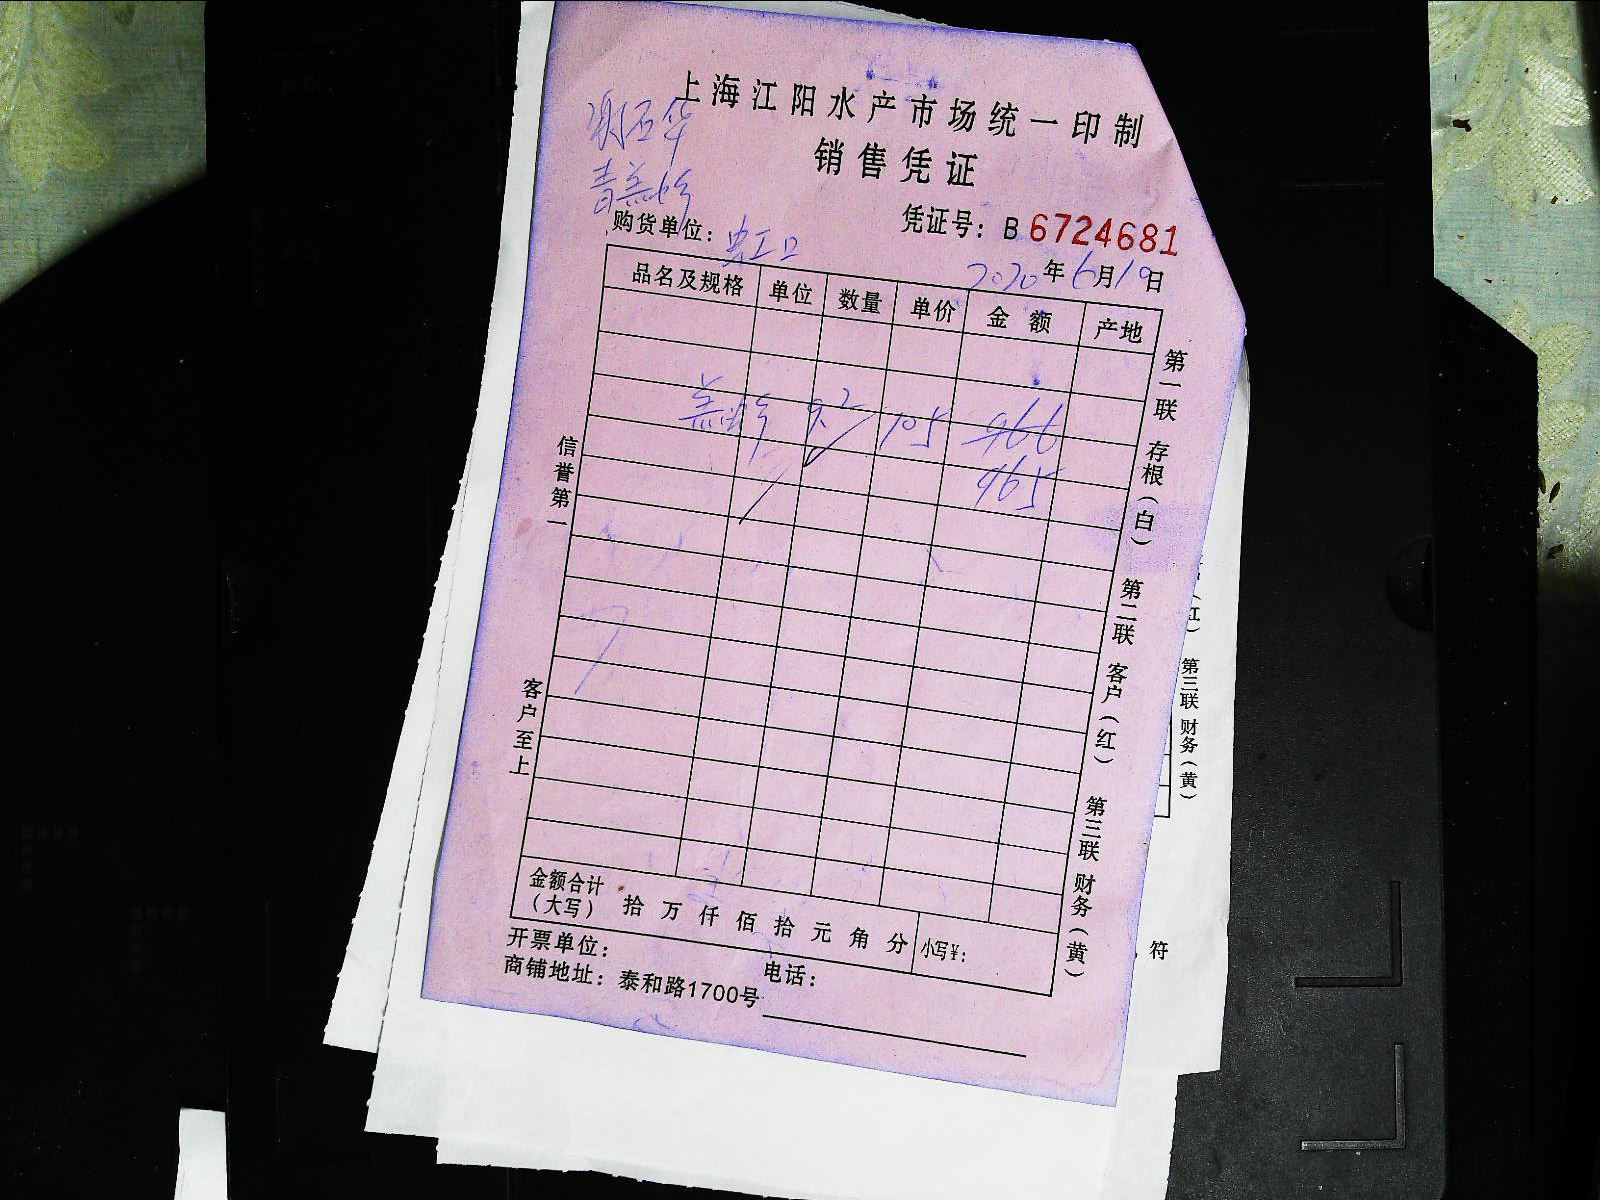 上海江阳水产市场统一印制
销售凭证
购货单位：虹口
凭证号：B 6724681
2020年6月10日
品名及规格 单位 数量 单价 金额 产地
9.2 105 966
965
信誉第一
客户至上
第一联 存根（白） 第二联 客户（红） 第三联 财务（黄）
金额合计（大写） 拾 万 仟 佰 拾 元 角 分 小写¥：
开票单位： 电话：
商铺地址：泰和路1700号
红） 第三联 财务（黄）
符